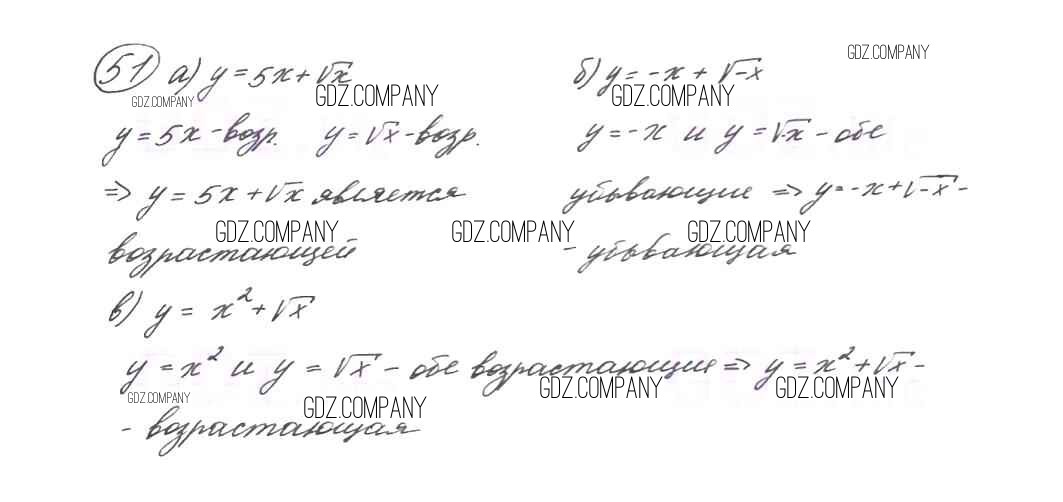 51 а) y = 5x + √x
GDZ.COMPANY
GDZ.COMPANY GDZ.COMPANY
y = 5x - возр. y = √x - возр.
=> y = 5x + √x является
GDZ.COMPANY
возрастающей
б) y = -x + √-x
GDZ.COMPANY
GDZ.COMPANY
y = -x и y = √-x - обе
убывающие => y = -x + √-x -
GDZ.COMPANY GDZ.COMPANY
- убывающая
в) y = x² + √x
y = x² и y = √x - обе возрастающие => y = x² + √x -
GDZ.COMPANY GDZ.COMPANY
GDZ.COMPANY GDZ.COMPANY
- возрастающая